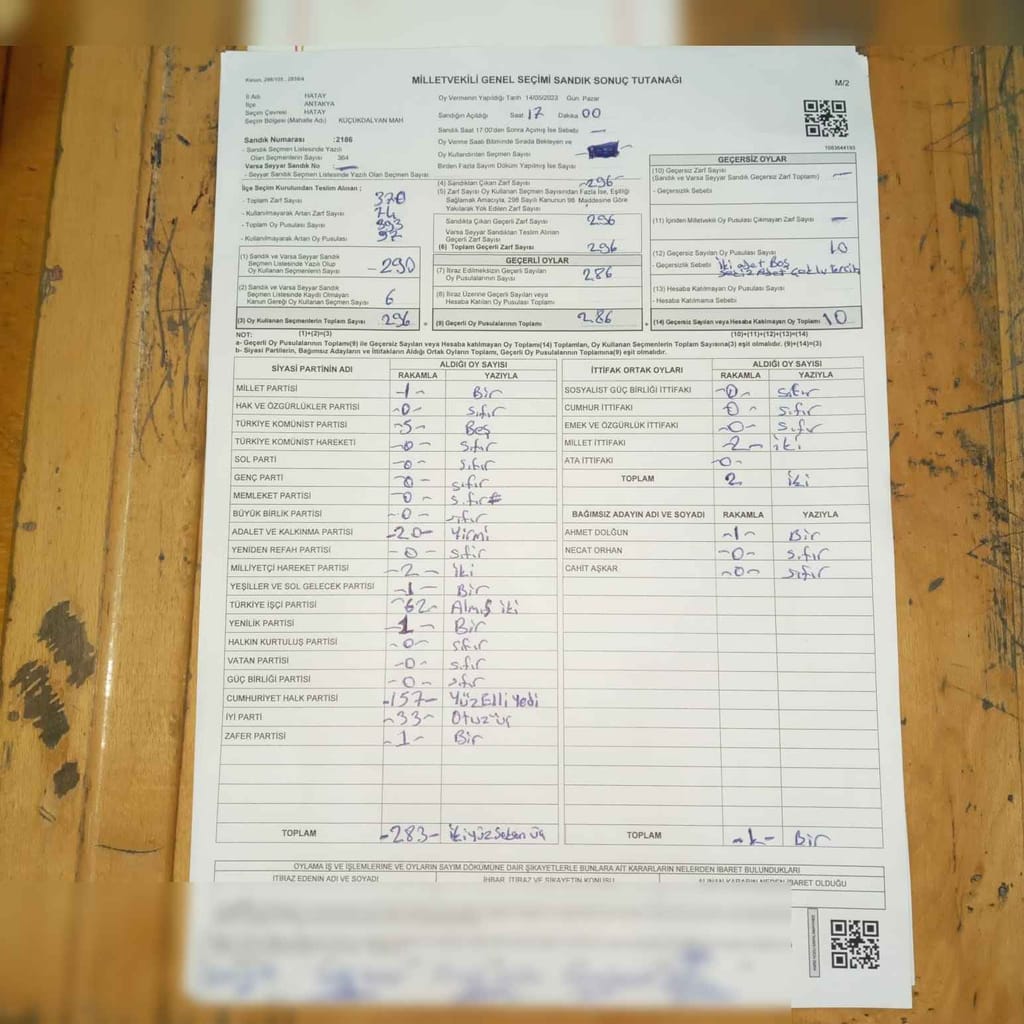 Kanun, 298/105 , 2839/4
MİLLETVEKİLİ GENEL SEÇİMİ SANDIK SONUÇ TUTANAĞI
M/2
İl Adı HATAY
İlçe ANTAKYA
Seçim Çevresi HATAY
Seçim Bölgesi (Mahalle Adı) KÜÇÜKDALYAN MAH
Sandık Numarası :2186
- Sandık Seçmen Listesinde Yazılı
Olan Seçmenlerin Sayısı 364
Varsa Seyyar Sandık No —
- Seyyar Sandık Seçmen Listesinde Yazılı Olan Seçmen Sayısı
İlçe Seçim Kurulundan Teslim Alınan ;
- Toplam Zarf Sayısı 370
- Kullanılmayarak Artan Zarf Sayısı 74
- Toplam Oy Pusulası Sayısı
- Kullanılmayarak Artan Oy Pusulası 97
(1) Sandık ve Varsa Seyyar Sandık
Seçmen Listesinde Yazılı Olup
Oy Kullanan Seçmenlerin Sayısı -290
(2) Sandık ve Varsa Seyyar Sandık
Seçmen Listesinde Kaydı Olmayan
Kanun Gereği Oy Kullanan Seçmen Sayısı 6
(3) Oy Kullanan Seçmenlerin Toplam Sayısı 296
Oy Vermenin Yapıldığı Tarih 14/05/2023 Gün Pazar
Sandığın Açıldığı Saat 17 Dakika 00
Sandık Saat 17.00'den Sonra Açılmış İse Sebebi —
Oy Verme Saati Bitiminde Sırada Bekleyen ve
Oy Kullandırılan Seçmen Sayısı
Birden Fazla Sayım Döküm Yapılmış İse Sayısı
(4) Sandıktan Çıkan Zarf Sayısı -296-
(5) Zarf Sayısı Oy Kullanan Seçmen Sayısından Fazla İse, Eşitliği
Sağlamak Amacıyla, 298 Sayılı Kanunun 98 Maddesine Göre
Yakılarak Yok Edilen Zarf Sayısı
Sandıkta Çıkan Geçerli Zarf Sayısı 296
Varsa Seyyar Sandıktan Teslim Alınan
Geçerli Zarf Sayısı
(6) Toplam Geçerli Zarf Sayısı 296
GEÇERLİ OYLAR
(7) İtiraz Edilmeksizin Geçerli Sayılan
Oy Pusulalarının Sayısı 286
(8) İtiraz Üzerine Geçerli Sayılan veya
Hesaba Katılan Oy Pusulası Toplamı
(9) Geçerli Oy Pusulalarının Toplamı 286
1083644193
GEÇERSİZ OYLAR
(10) Geçersiz Zarf Sayısı
(Sandık ve Varsa Seyyar Sandık Geçersiz Zarf Toplamı) —
- Geçersizlik Sebebi
(11) İçinden Milletvekili Oy Pusulası Çıkmayan Zarf Sayısı —
(12) Geçersiz Sayılan Oy Pusulası Sayısı 10
- Geçersizlik Sebebi İki adet Boş
Sekiz Adet Çoklu Tercih
(13) Hesaba Katılmayan Oy Pusulası Sayısı
- Hesaba Katılmama Sebebi
(14) Geçersiz Sayılan veya Hesaba Katılmayan Oy Toplamı 10
NOT: (1)+(2)=(3) (10)+(11)+(12)+(13)=(14)
a- Geçerli Oy Pusulalarının Toplamı(9) ile Geçersiz Sayılan veya Hesaba katılmayan Oy Toplamı(14) Toplamları, Oy Kullanan Seçmenlerin Toplam Sayısına(3) eşit olmalıdır. (9)+(14)=(3)
b- Siyasi Partilerin, Bağımsız Adayların ve İttifakların Aldığı Ortak Oyların Toplamı, Geçerli Oy Pusulalarının Toplamına(9) eşit olmalıdır.
SİYASİ PARTİNİN ADI ALDIĞI OY SAYISI
RAKAMLA YAZIYLA
MİLLET PARTİSİ -1- Bir
HAK VE ÖZGÜRLÜKLER PARTİSİ -0- sıfır
TÜRKİYE KOMÜNİST PARTİSİ -5- Beş
TÜRKİYE KOMÜNİST HAREKETİ -0- sıfır
SOL PARTİ -0- sıfır
GENÇ PARTİ -0- sıfır
MEMLEKET PARTİSİ -0- sıfır
BÜYÜK BİRLİK PARTİSİ -0- sıfır
ADALET VE KALKINMA PARTİSİ -20- Yirmi
YENİDEN REFAH PARTİSİ -0- sıfır
MİLLİYETÇİ HAREKET PARTİSİ -2- iki
YEŞİLLER VE SOL GELECEK PARTİSİ -1- Bir
TÜRKİYE İŞÇİ PARTİSİ -62- Almış iki
YENİLİK PARTİSİ -1- Bir
HALKIN KURTULUŞ PARTİSİ -0- sıfır
VATAN PARTİSİ -0- sıfır
GÜÇ BİRLİĞİ PARTİSİ -0- sıfır
CUMHURİYET HALK PARTİSİ -157- Yüz Elli Yedi
İYİ PARTİ -33- Otuz üç
ZAFER PARTİSİ -1- Bir
TOPLAM -283- İkiyüz Seksen üç
İTTİFAK ORTAK OYLARI ALDIĞI OY SAYISI
RAKAMLA YAZIYLA
SOSYALİST GÜÇ BİRLİĞİ İTTİFAKI -0- sıfır
CUMHUR İTTİFAKI 0 - sıfır
EMEK VE ÖZGÜRLÜK İTTİFAKI -0- sıfır
MİLLET İTTİFAKI -2- iki
ATA İTTİFAKI -0-
TOPLAM 2 iki
BAĞIMSIZ ADAYIN ADI VE SOYADI RAKAMLA YAZIYLA
AHMET DOLĞUN -1- Bir
NECAT ORHAN -0- sıfır
CAHİT AŞKAR -0- sıfır
TOPLAM -1- Bir
OYLAMA İŞ VE İŞLEMLERİNE VE OYLARIN SAYIM DÖKÜMÜNE DAİR ŞİKAYETLERLE BUNLARA AİT KARARLARIN NELERDEN İBARET BULUNDUKLARI
İTİRAZ EDENİN ADI VE SOYADI İHBAR, İTİRAZ VE ŞİKAYETİN KONUSU ALINAN KARARIN NEDEN İBARET OLDUĞU